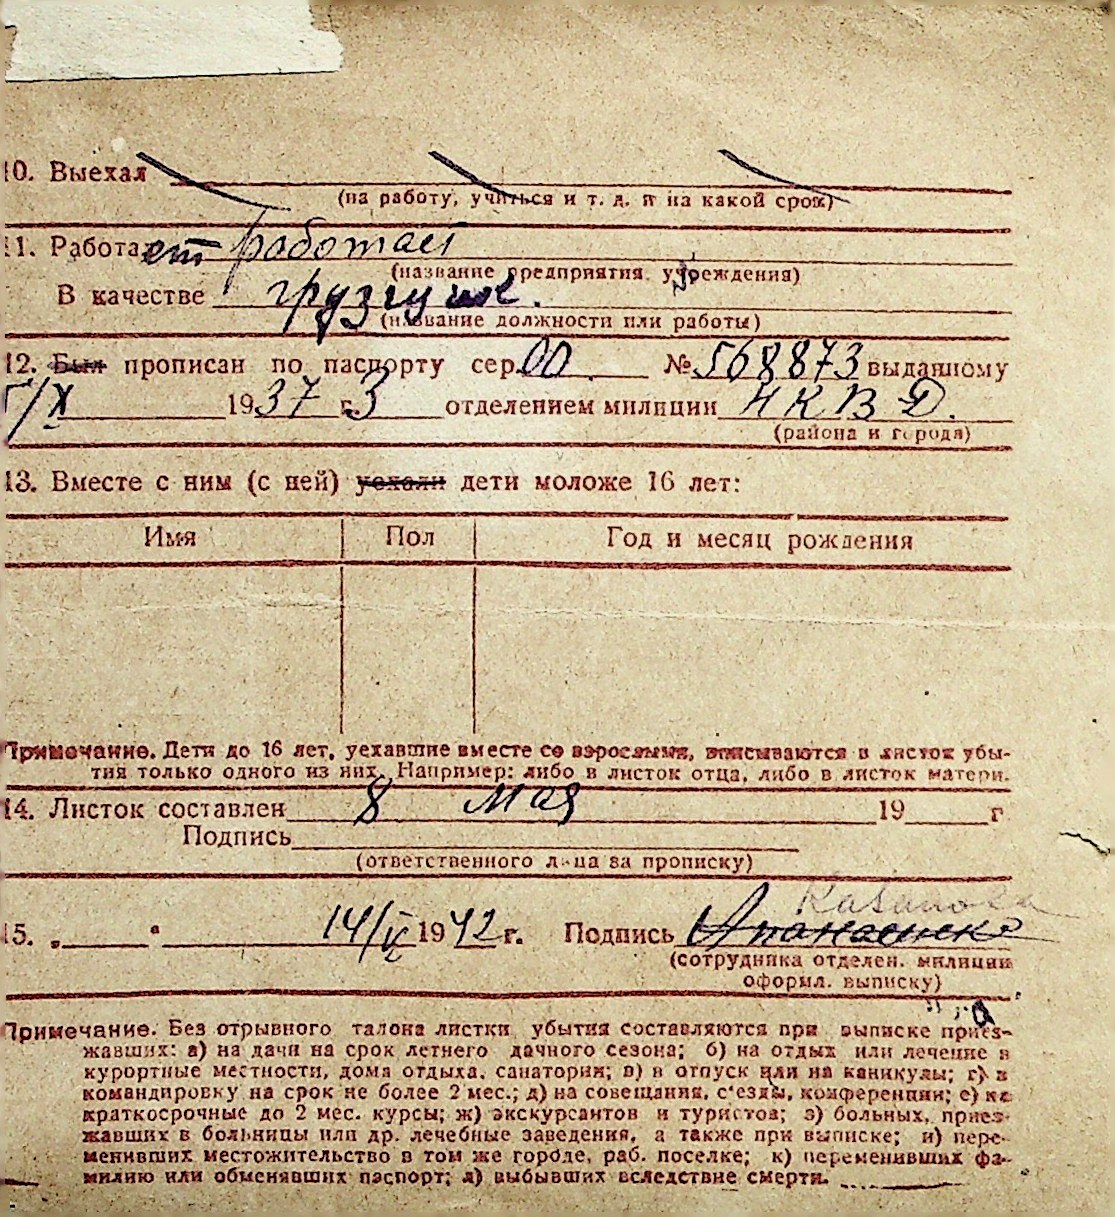 10. Выехал
(на работу, учиться и т. д. и на какой срок)
11. Работает работает
(название предприятия, учреждения)
В качестве грузчик.
(название должности или работы)
12. Был прописан по паспорту сер. 00 № 568873 выданному
/X 1937 г. 3 отделением милиции НКВД.
(района и города)
13. Вместе с ним (с ней) уехали дети моложе 16 лет:
Имя Пол Год и месяц рождения
Примечание. Дети до 16 лет, уехавшие вместе со взрослыми, вписываются в листок убы-
тия только одного из них. Например: либо в листок отца, либо в листок матери.
14. Листок составлен 8 мая 19 г
Подпись
(ответственного лица за прописку)
15. „ “ 14/V 1942 г. Подпись
(сотрудника отделен. милиции
оформл. выписку)
Примечание. Без отрывного талона листки убытия составляются при выписке приез-
жавших: а) на дачи на срок летнего дачного сезона; б) на отдых или лечение в
курортные местности, дома отдыха, санатории; в) в отпуск или на каникулы; г) в
командировку на срок не более 2 мес.; д) на совещания, с'езды, конференции; е) на
краткосрочные до 2 мес. курсы; ж) экскурсантов и туристов; з) больных, приез-
жавших в больницы или др. лечебные заведения, а также при выписке; и) пере-
менивших местожительство в том же городе, раб. поселке; к) переменивших фа-
милию или обменявших паспорт; л) выбывших вследствие смерти.